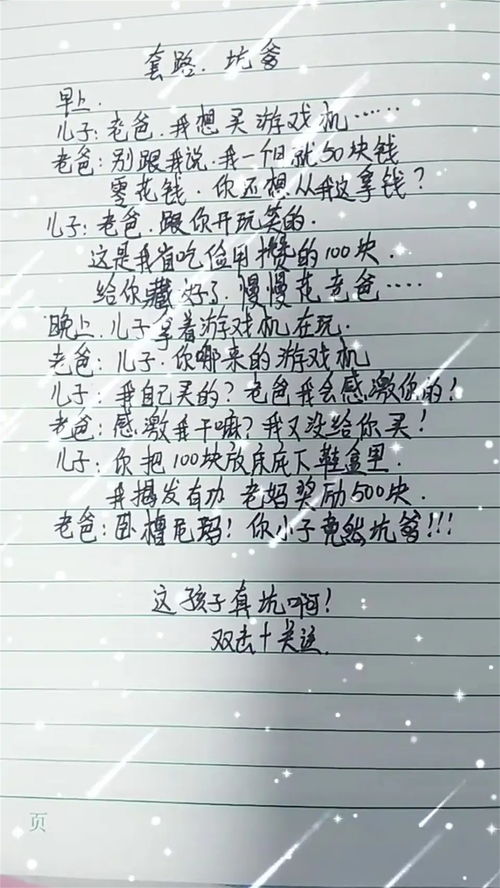 套路.坑爹
早上.
儿子:老爸.我想买游戏机……
老爸:别跟我说.我一个月就50块钱
零花钱.你还想从我这拿钱?
儿子:老爸.跟你开玩笑的.
这是我省吃俭用攒的100块.
给你藏好了.慢慢花老爸……
晚上.儿子拿着游戏机在玩.
老爸:儿子.你哪来的游戏机
儿子:我自己买的?老爸我会感激你的!
老爸:感激我干嘛?我又没给你买!
儿子:你把100块放床底下鞋盒里.
我揭发有功 老妈奖励500块.
老爸:卧槽尼玛!你小子竟然坑爹!!!
这孩子真坑啊!
双击十关注.
页